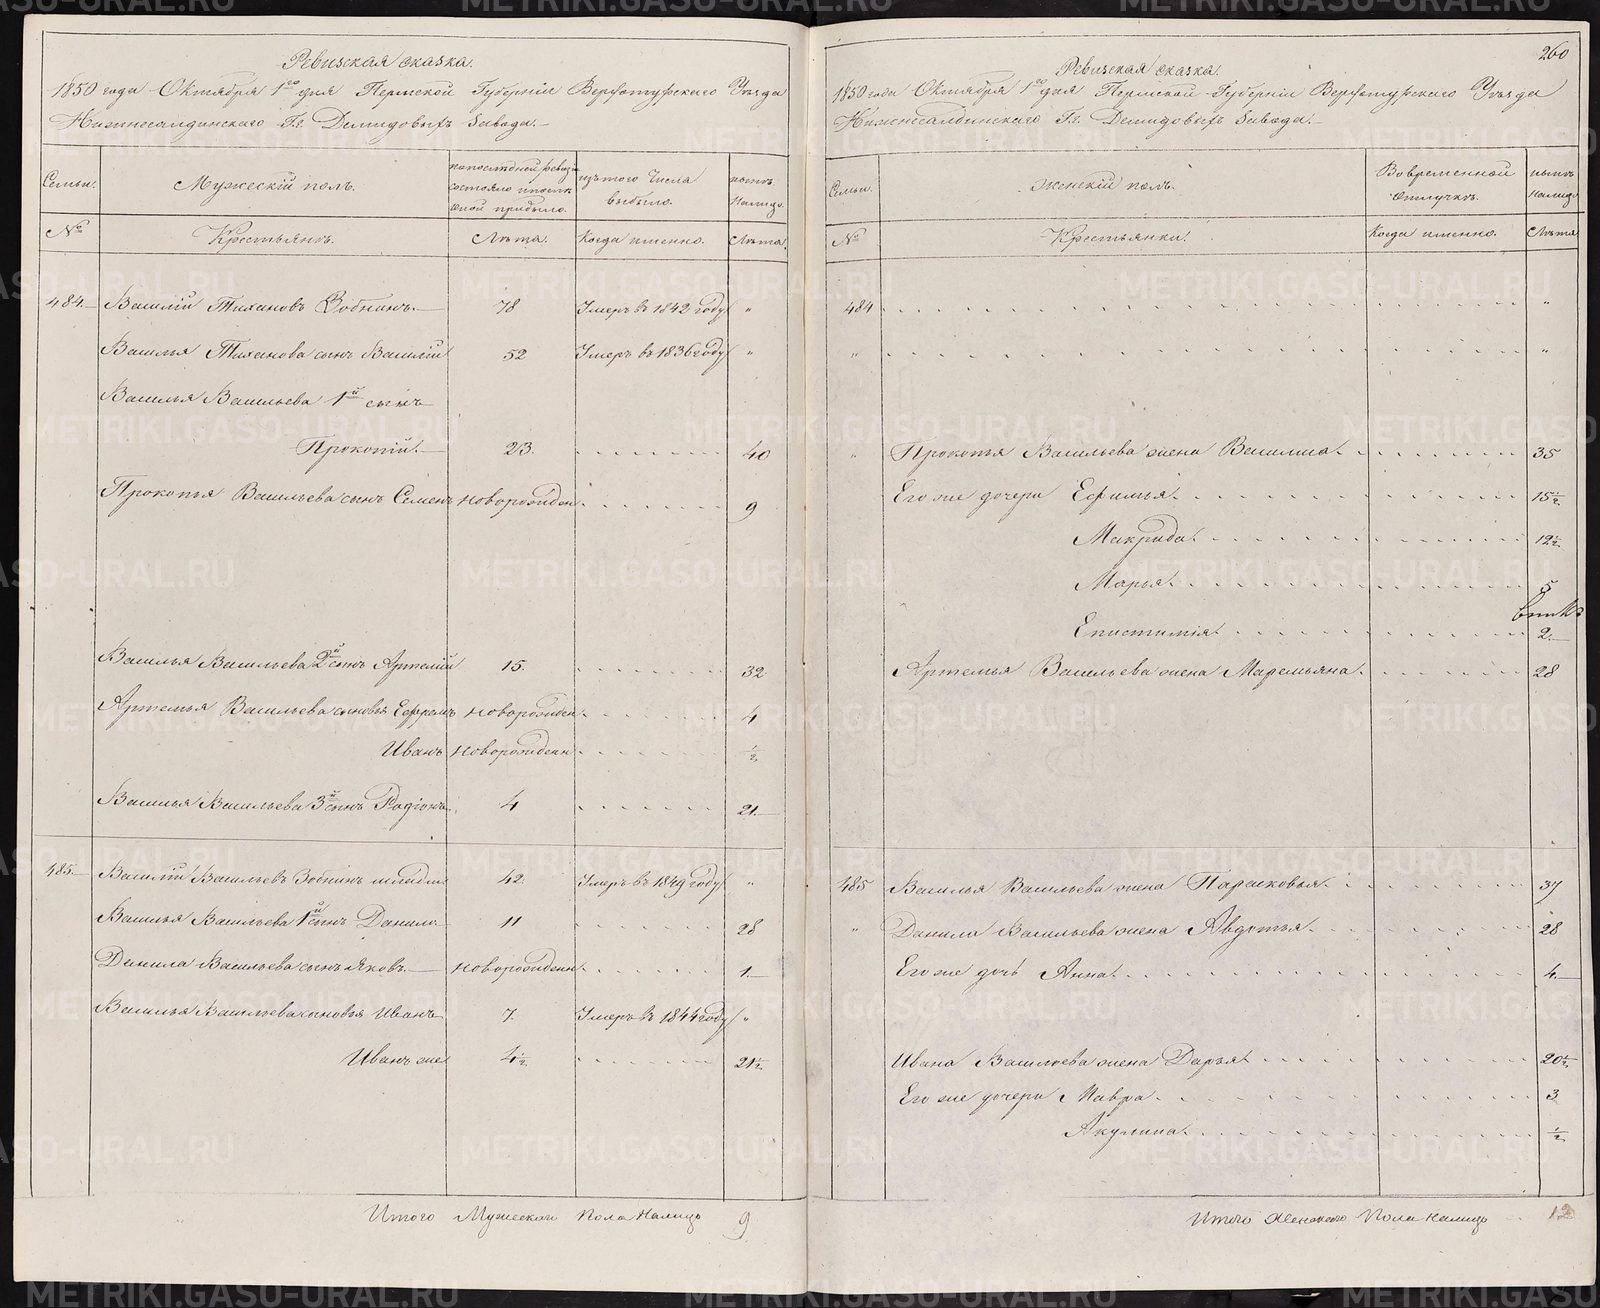 Ревизская сказка.
1850 года Октября 1го дня Пермской Губерніи Верхотурскаго Уѣзда
Нижнесалдинскаго Гг. Демидовыхъ Завода.
Семьи.
Мужескій полъ.
по последней ревизіи
состояло и после
оной прибыло.
изъ того Числа
выбыло.
ныне
На лицо.
№
Крестьянъ.
Лѣта.
Когда именно.
Лѣта.
484. Василій Тихановъ Зобнинъ. 78 Умеръ въ 1842 году "
Василья Тиханова сынъ Василій 52 Умеръ въ 1836 году "
Василья Васильева 1й сынъ
Прокопій. 23. 40
Прокопья Васильева сынъ Семенъ новорожден 9
Василья Васильева 2й сынъ Артемій 15. 32
Артемья Васильева сыновья Ефремъ новорожден 4
Иванъ новорожденн 1/2
Василья Васильева 3й сынъ Родіонъ 4 21.
485. Василій Васильевъ Зобнинъ младш. 42. Умеръ въ 1849 году "
Василья Васильева 1й сынъ Данило 11 28
Данила Васильева сынъ Яковъ. новорожденн 1.
Василья Васильева сыновья Иванъ 7. Умеръ въ 1844 году "
Иванъ же 4 1/2 21 1/2
Итого Мужеска Пола На лицо 9
260
Ревизская сказка.
1850 года Октября 1го дня Пермской Губерніи Верхотурскаго Уѣзда
Нижнесалдинскаго Гг. Демидовыхъ Завода.
Семьи.
Женскій полъ.
Во временной
отлучкѣ.
ныне
На лицо
№
Крестьянки.
Когда именно.
Лѣта
484 "
" "
" Прокопья Васильева жена Василиса. 35
Его же дочери Ефимья. 15 1/2
Макрида. 12 1/2
Марья. 5
Епистимія. 2.
Артемья Васильева жена Маремьяна. 28
485 Василья Васильева жена Парасковья. 37
" Данила Васильева жена Авдотья. 28
Его же дочь Анна. 4.
Ивана Васильева жена Дарья. 20 1/2
Его же дочери Мавра. 3
Акулина. 1/2
Итого Женскаго Пола на лицо 12
METRIKI.GASO-URAL.RU